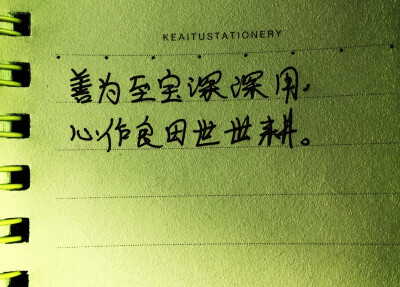 KEAITUSTATIONERY
善为至宝深深用.
心作良田世世耕。